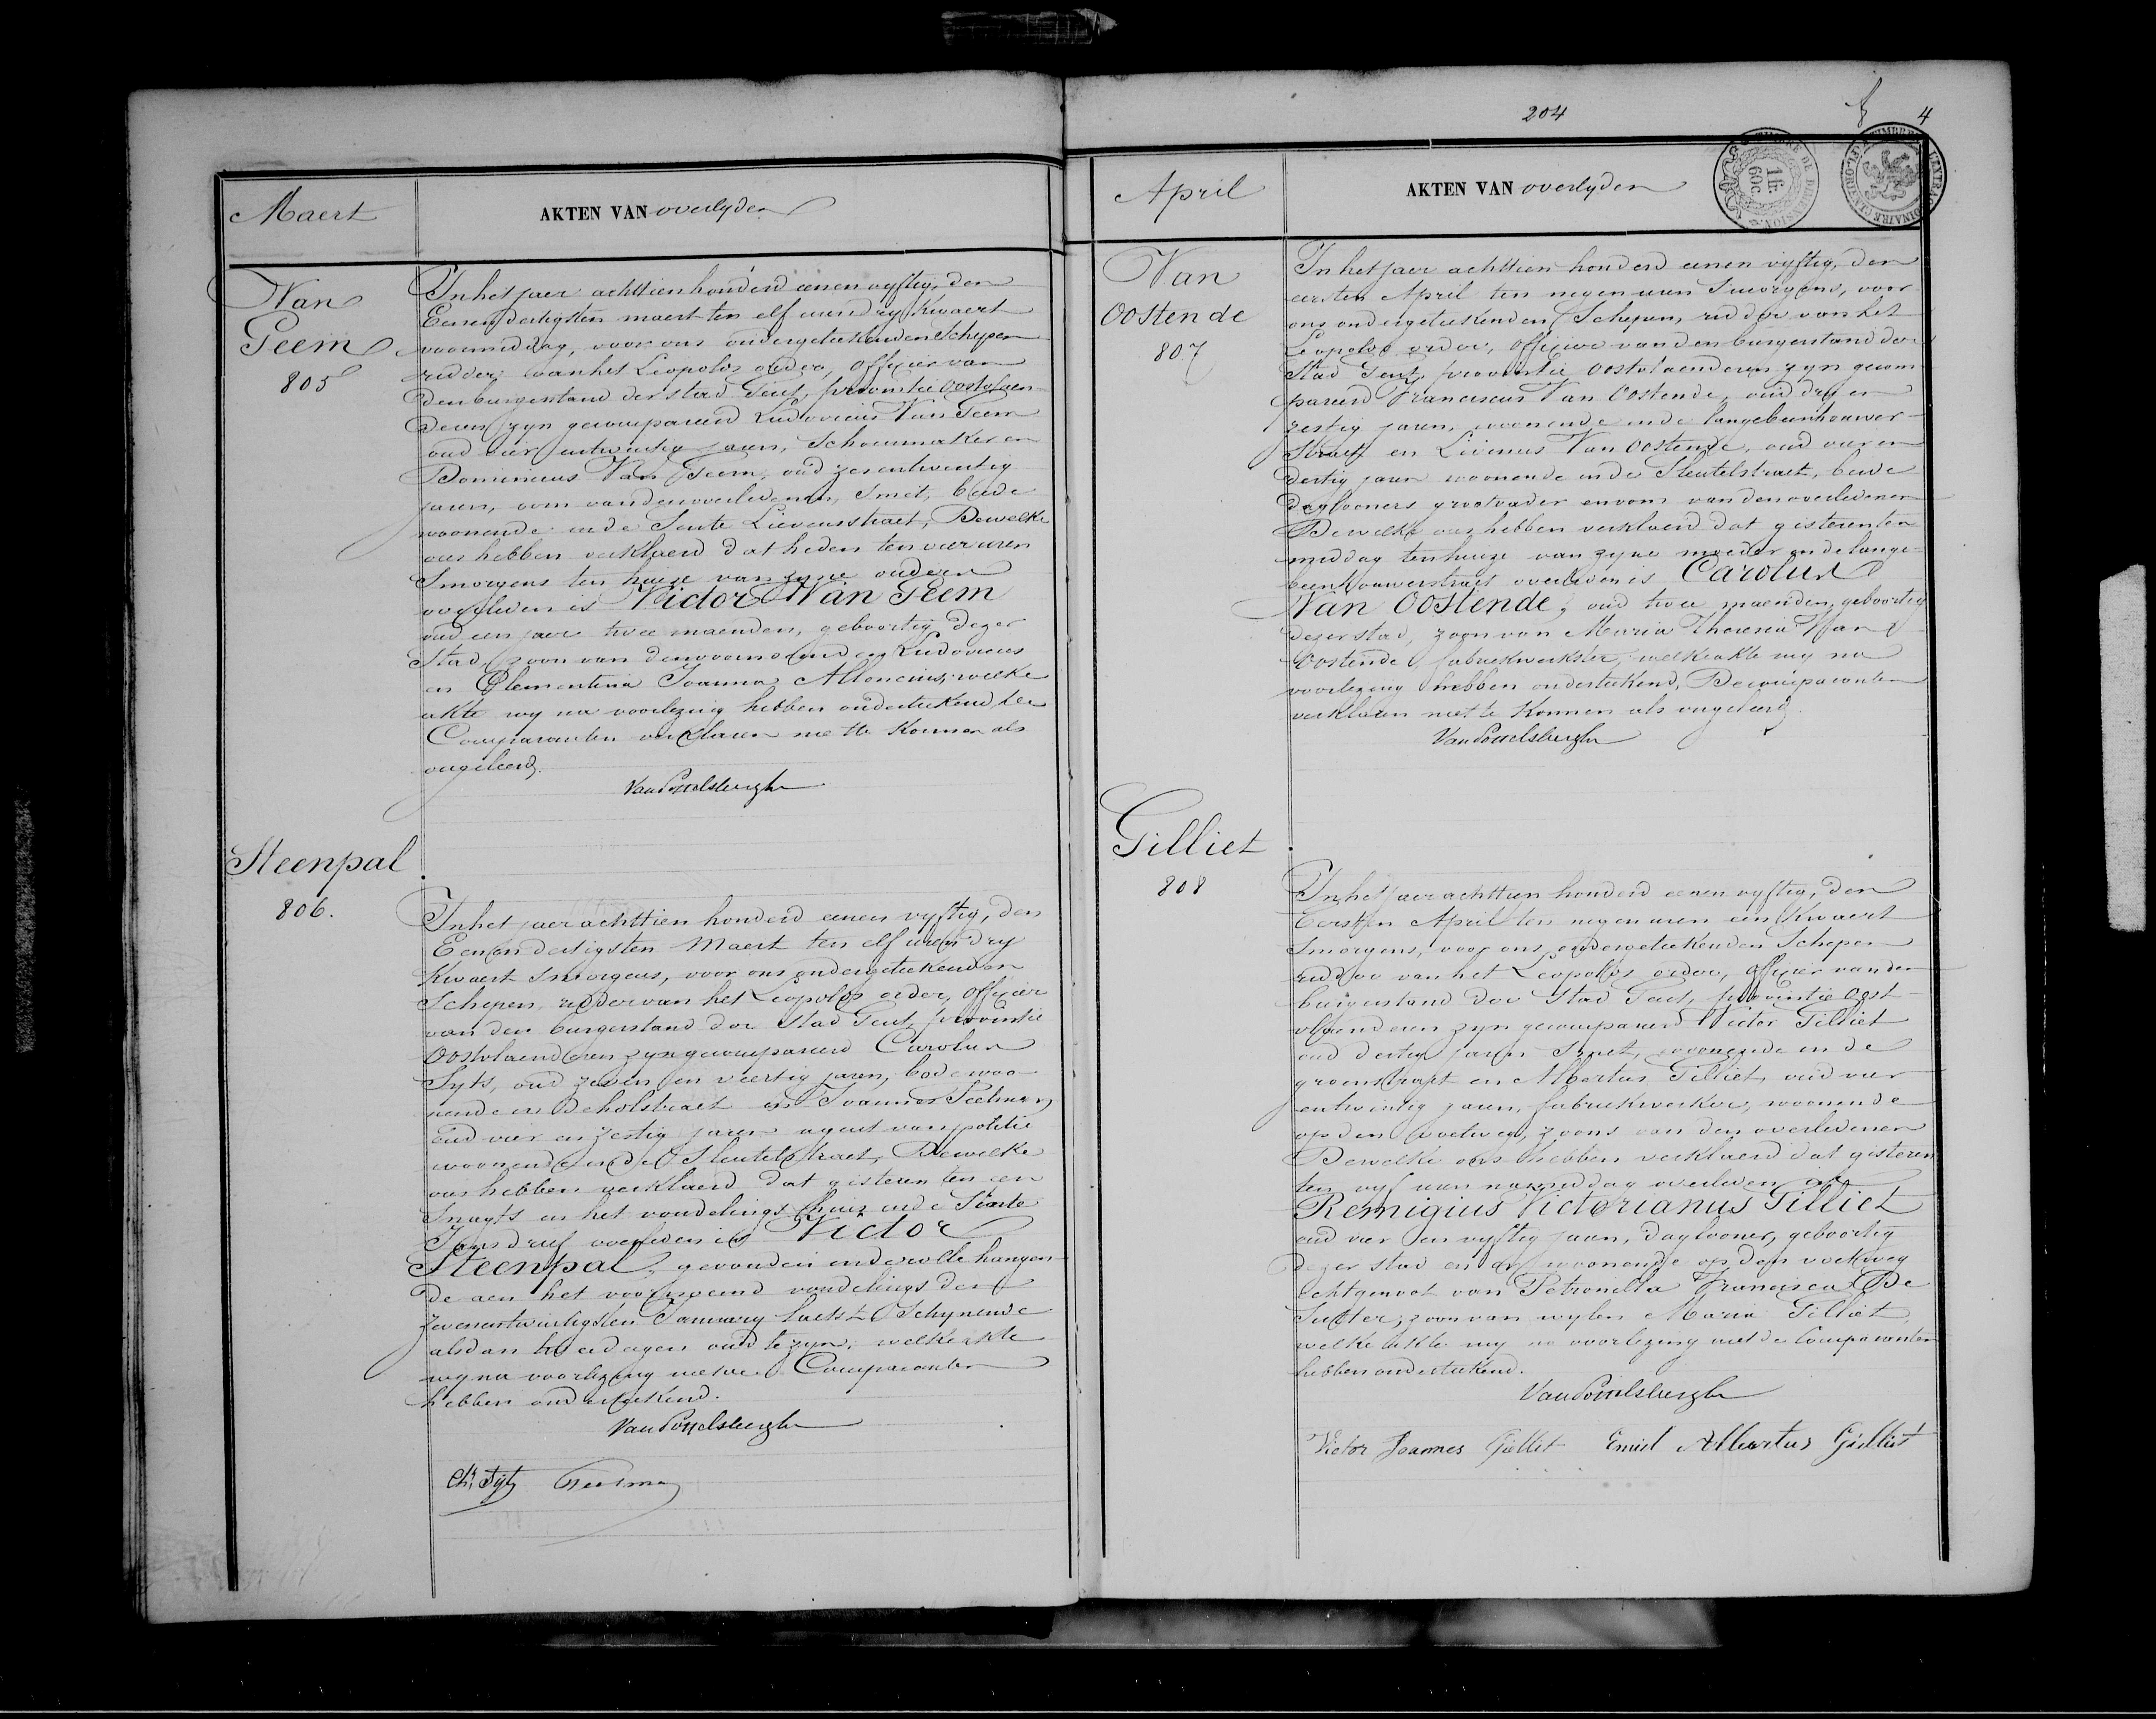 Maert
AKTEN VAN overlyden
Van
Geem
805
In het jaer achttien honderd eenen vyftig, den
Eenen dertigsten maert ten elf uren dry kwaert
voormiddag, voor ons ondergeteekenden Schepen
ridder van het Leopolds order, officier van
den burgerstand der stad Gent, provintie Oostvlaen
deren zyn gecompareerd Ludovicus Van Geem
oud vier entwintig jaren, Schoenmaker en
Dominicus Van Geem, oud zes entwintig
jaren, oom van den overledenen, Smet, beide
woonende in de Sente Lievensstraet, Dewelke
ons hebben verklaerd dat heden ten vier uren
Smorgens ten huize van zyne ouders
overleden is Victor Van Geem
oud een jaer twee maenden, geboortig dezer
Stad, zoon van den voornoemden Ludovicus
en Clementina Joanna welke
akte wy na voorlezing hebben onderteekend de
Comparanten verklaren niet te konnen als
ongeleerd.
Van Pottelsberghe
Steenpal
806.
In het jaer achttien honderd eenen vyftig, den
Eenen dertigsten Maert ten elf uren dry
kwaert Smorgens, voor ons ondergeteekenden
Schepen, ridder van het Leopolds order, officier
van den burgerstand der Stad Gent, provintie
Oostvlaenderen zyn gecompareerd Carolus
Syts, oud zeven en veertig jaren, bode woo
nende in de holstraet en Joannes Teelman
oud vier en zestig jaren agent van politie
woonende in de Sleutelstraet, Dewelke
ons hebben verklaerd dat gisteren ten een
Snagts in het vondelings huis in de Sinte
Jans dreef overleden is Victor
Steenpal, gevonden in de rolle hangen
de aen het voornoemd vondelings den
zevenentwintigsten January laetst Schynende
alsdan twee dagen oud te zyn, welke akte
wy na voorlezing met de Comparanten
hebben onderteekend.
Van Pottelsberghe
Ch. Syts Teelman
204
4
April
AKTEN VAN overlyden
TIMBRE DE DIMENSION
1 fr.
60 c.
TIMBRE EXTRAORDINAIRE
Van
Oostende
807
In het jaer achttien honderd eenen vyftig, den
eersten April ten negen uren Smorgens, voor
ons ondergeteekenden Schepen, ridder van het
Leopolds order, officier van den burgerstand der
Stad Gent, provintie Oostvlaenderen zyn gecom
pareerd Franciscus Van Oostende, oud dry en
zestig jaren, woonende in de langebeenhouwer
Straet en Livinus Van Oostende, oud vier en
dertig jaren woonende in de Sleutelstraet, beide
daglooners grootvader en oom van den overledenen
Dewelke ons hebben verklaerd dat gisteren ten
middag ten huize van zyne moeder in de lange
beenhouwerstraet overleden is Carolus
Van Oostende, oud twee maenden, geboortig
dezer stad, zoon van Maria Theresia Van
Oostende, fabriekwerkster, welke akte wy na
voorlezing hebben onderteekend, De comparanten
verklaren niet te konnen als ongeleerd.
Van Pottelsberghe
Gilliet
808
In het jaer achttien honderd eenen vyftig, den
Eersten April ten negen uren een kwaert
Smorgens, voor ons ondergeteekenden Schepen
ridder van het Leopolds order, officier van den
burgerstand der Stad Gent, provintie Oost
vlaenderen zyn gecompareerd Victor Gilliet
oud dertig jaren Smet, woonende in de
groenstraet en Albertus Gilliet, oud vier
entwintig jaren, fabriekwerker, woonende
op den voetweg, zoons van den overledenen
Dewelke ons hebben verklaerd dat gisteren
ten vyf uren namiddag overleden is
Remigius Victorianus Gilliet
oud vier en vyftig jaren, daglooner, geboortig
dezer stad en er woonende op den voetweg
echtgenoot van Petronilla Francisca De
Sutter, zoon van wylen Maria Gilliet,
welke akte wy na voorlezing met de Comparanten
hebben onderteekend.
Van Pottelsberghe
Victor Joannes Gilliet Emiel Albertus Gilliet